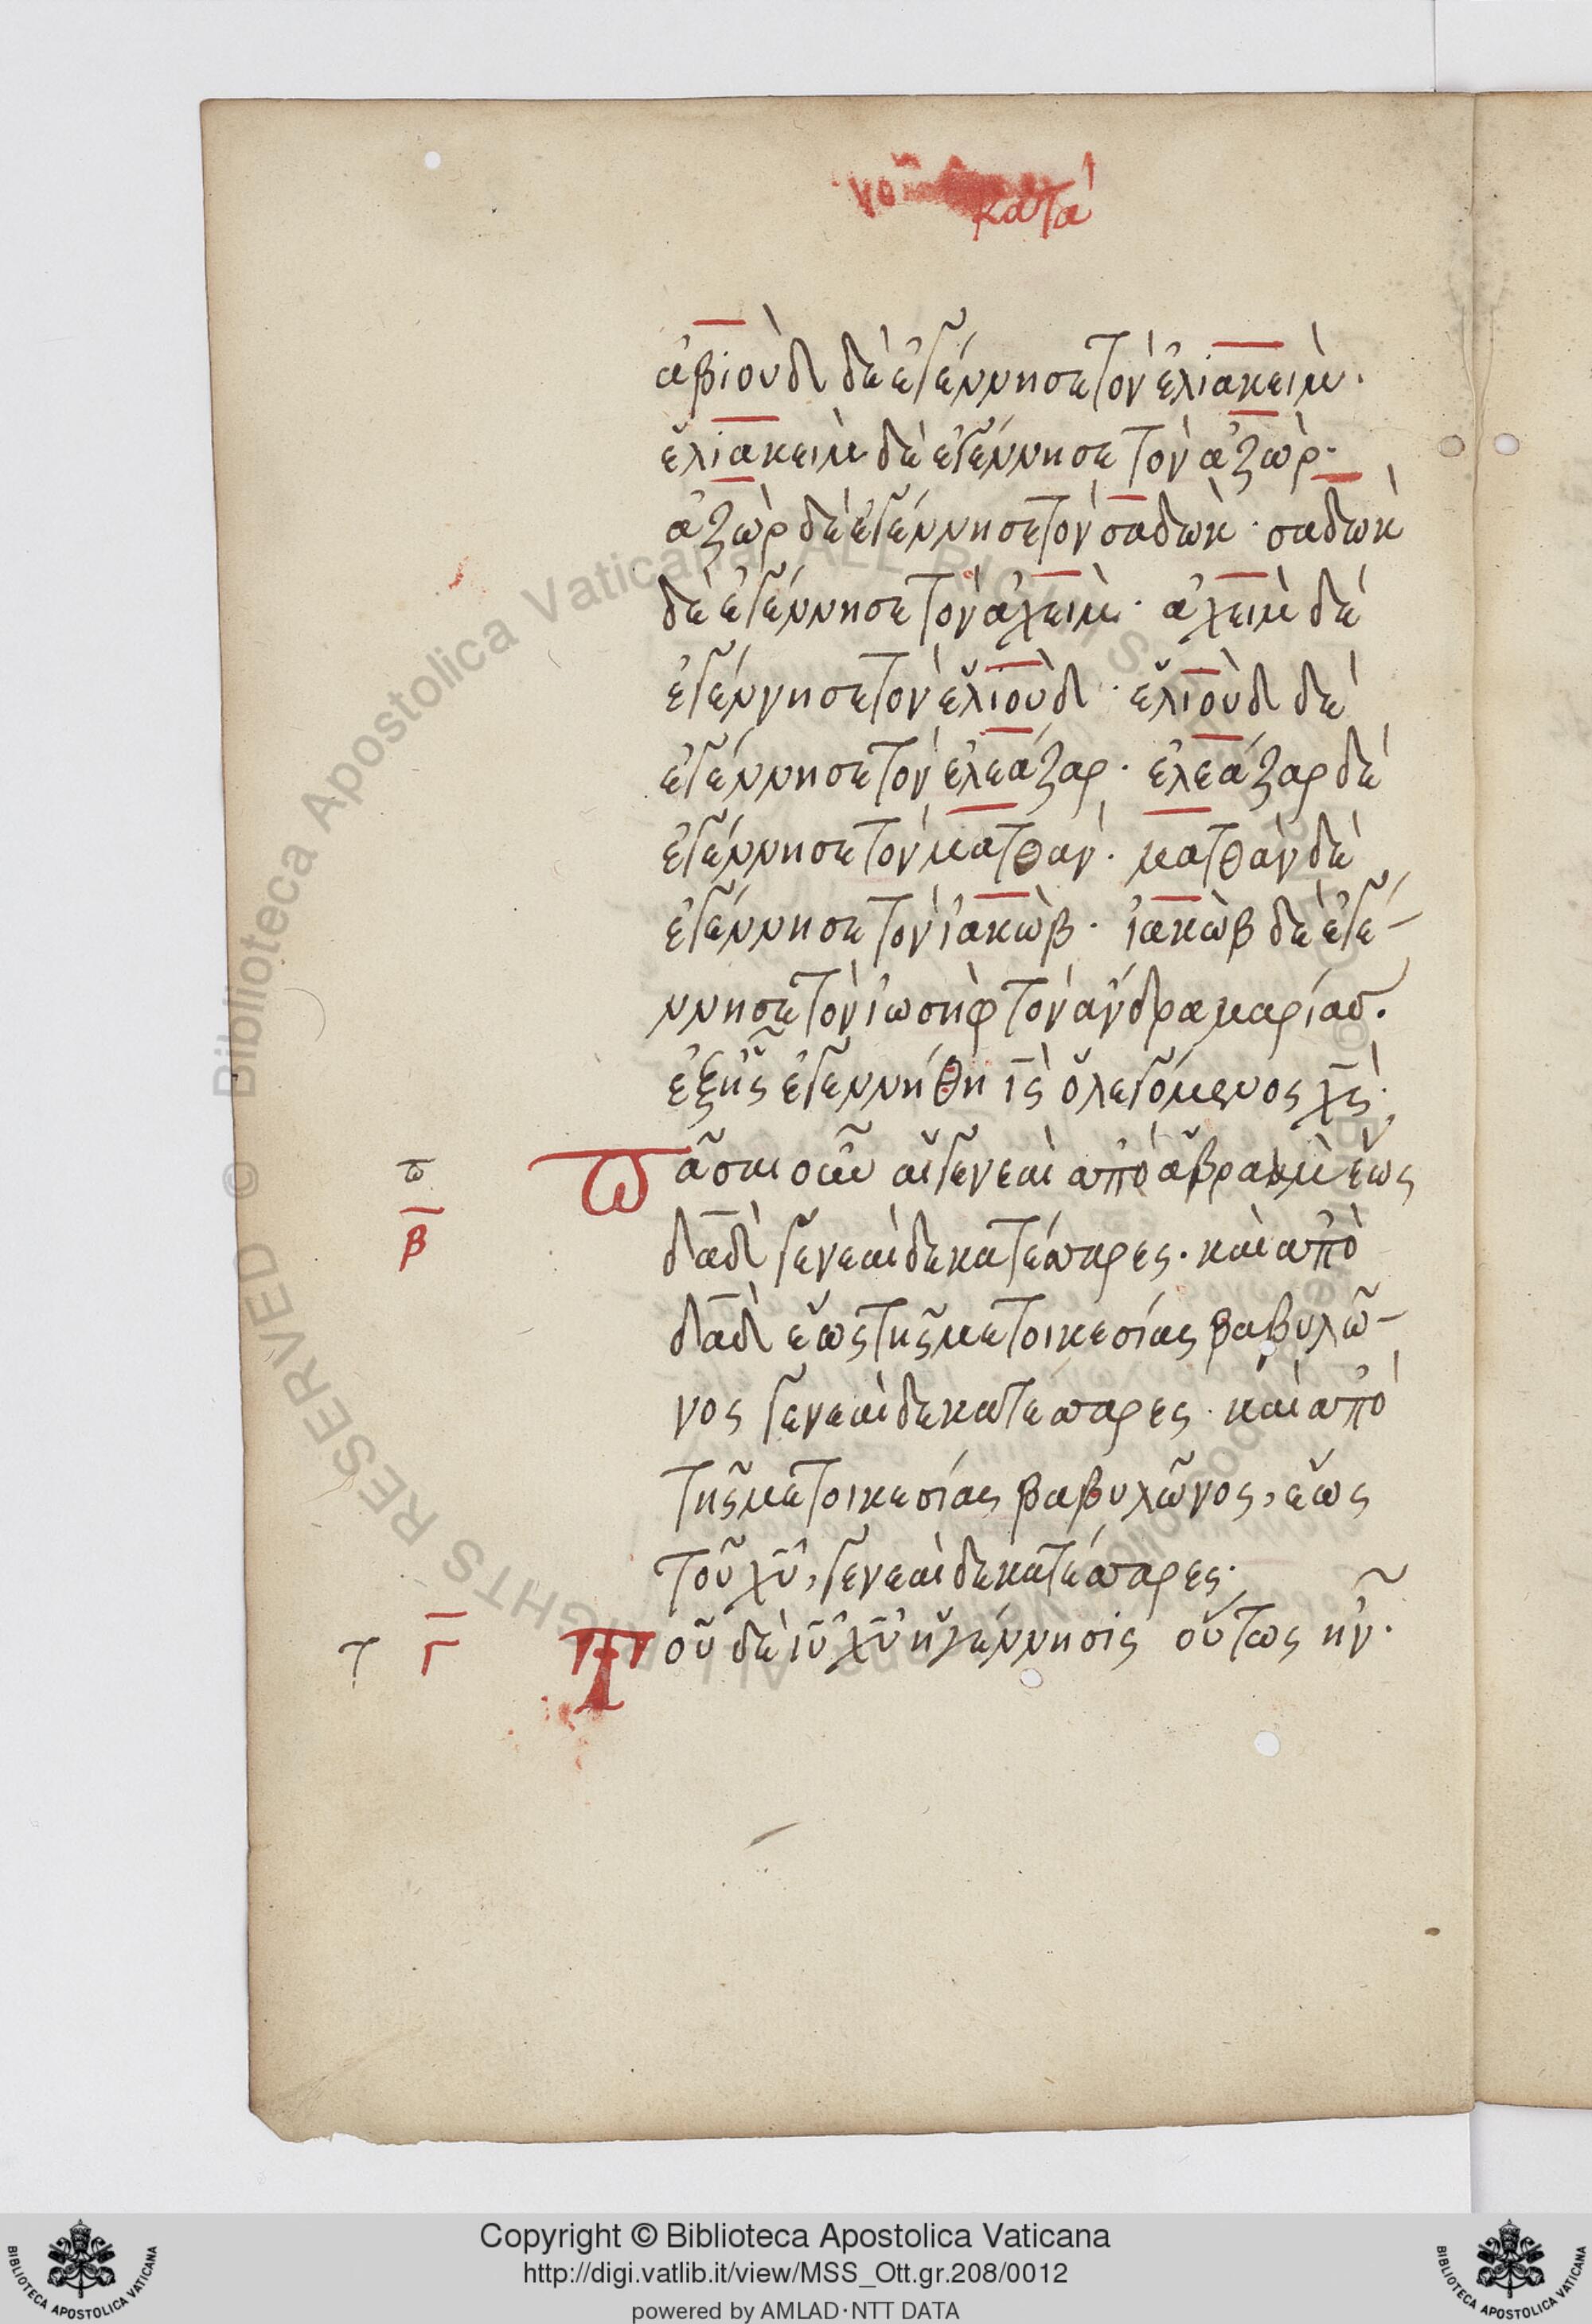 κατά
ἀβιοὺδ δὲ ἐγέννησε τὸν ἐλιακεὶμ.
ἐλιακεὶμ δὲ ἐγέννησε τὸν ἀζὼρ.
ἀζὼρ δὲ ἐγέννησε τὸν σαδὼκ · σαδὼκ
δὲ ἐγέννησε τὸν ἀχεὶμ · ἀχεὶμ δὲ
ἐγέννησε τὸν ἐλιοὺδ · ἐλιοὺδ δὲ
ἐγέννησε τὸν ἐλεάζαρ · ἐλεάζαρ δὲ
ἐγέννησε τὸν ματθὰν · ματθὰν δὲ
ἐγέννησε τὸν ἰακὼβ · ἰακὼβ δὲ ἐγέ-
ννησε τὸν ἰωσὴφ τὸν ἄνδρα μαρίας.
ἐξ ἧς ἐγεννήθη ις ὁ λεγόμενος χς ·
π πᾶσαι οὖν αἱ γενεαὶ ἀπὸ ἀβραὰμ ἕως
β δαδ γενεαὶ δεκατέσσαρες · καὶ ἀπὸ
δαδ ἕως τῆς μετοικεσίας βαβυλῶ-
νος γενεαὶ δεκατέσσαρες · καὶ ἀπὸ
τῆς μετοικεσίας βαβυλῶνος, ἕως
τοῦ χυ, γενεαὶ δεκατέσσαρες ·
τ γ τοῦ δὲ ιυ χυ ἡ γέννησις οὕτως ἦν ·
Copyright © Biblioteca Apostolica Vaticana
http://digi.vatlib.it/view/MSS_Ott.gr.208/0012
powered by AMLAD·NTT DATA
BIBLIOTECA APOSTOLICA VATICANA
BIBLIOTECA APOSTOLICA VATICANA
© Biblioteca Apostolica Vaticana ALL RIGHTS RESERVED